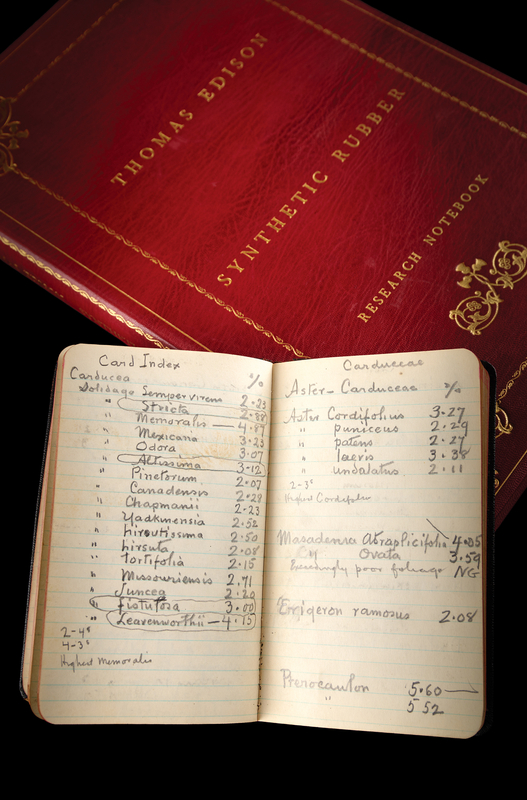 THOMAS EDISON
SYNTHETIC RUBBER
RESEARCH NOTEBOOK
Card Index
Carducea %
Solidago Sempervirens 2.23
" Stricta 2.88
" Memoralis — 4.87
" Mexicana 3.23
" Odora 3.07
" Altissima 3.12
" Pinetorum 2.07
" Canadensis 2.29
" Chapmanii 2.23
" Yadkinensia 2.52
" hirsutissma 2.50
" hirsuta 2.08
" tortifolia 2.15
" Missouriensis 2.71
" Juncea 2.20
" fistulosa 3.00
" Leavenworthii — 4.15
2-4s
4-3s
Highest Memoralis
Carduceae
Aster - Carduceae %
Aster Cordifolius 3.27
" puniceus 2.29
" patens 2.27
" laevis 3.38
" undalatus 2.11
2-3s
Highest Cordifolius
Masadenia Atraplicifolia 4.05
Ovata 3.59
Exceedingly poor foliage NG
Erigeron ramosus 2.08
Prerocaulon 5.60
" 5 52